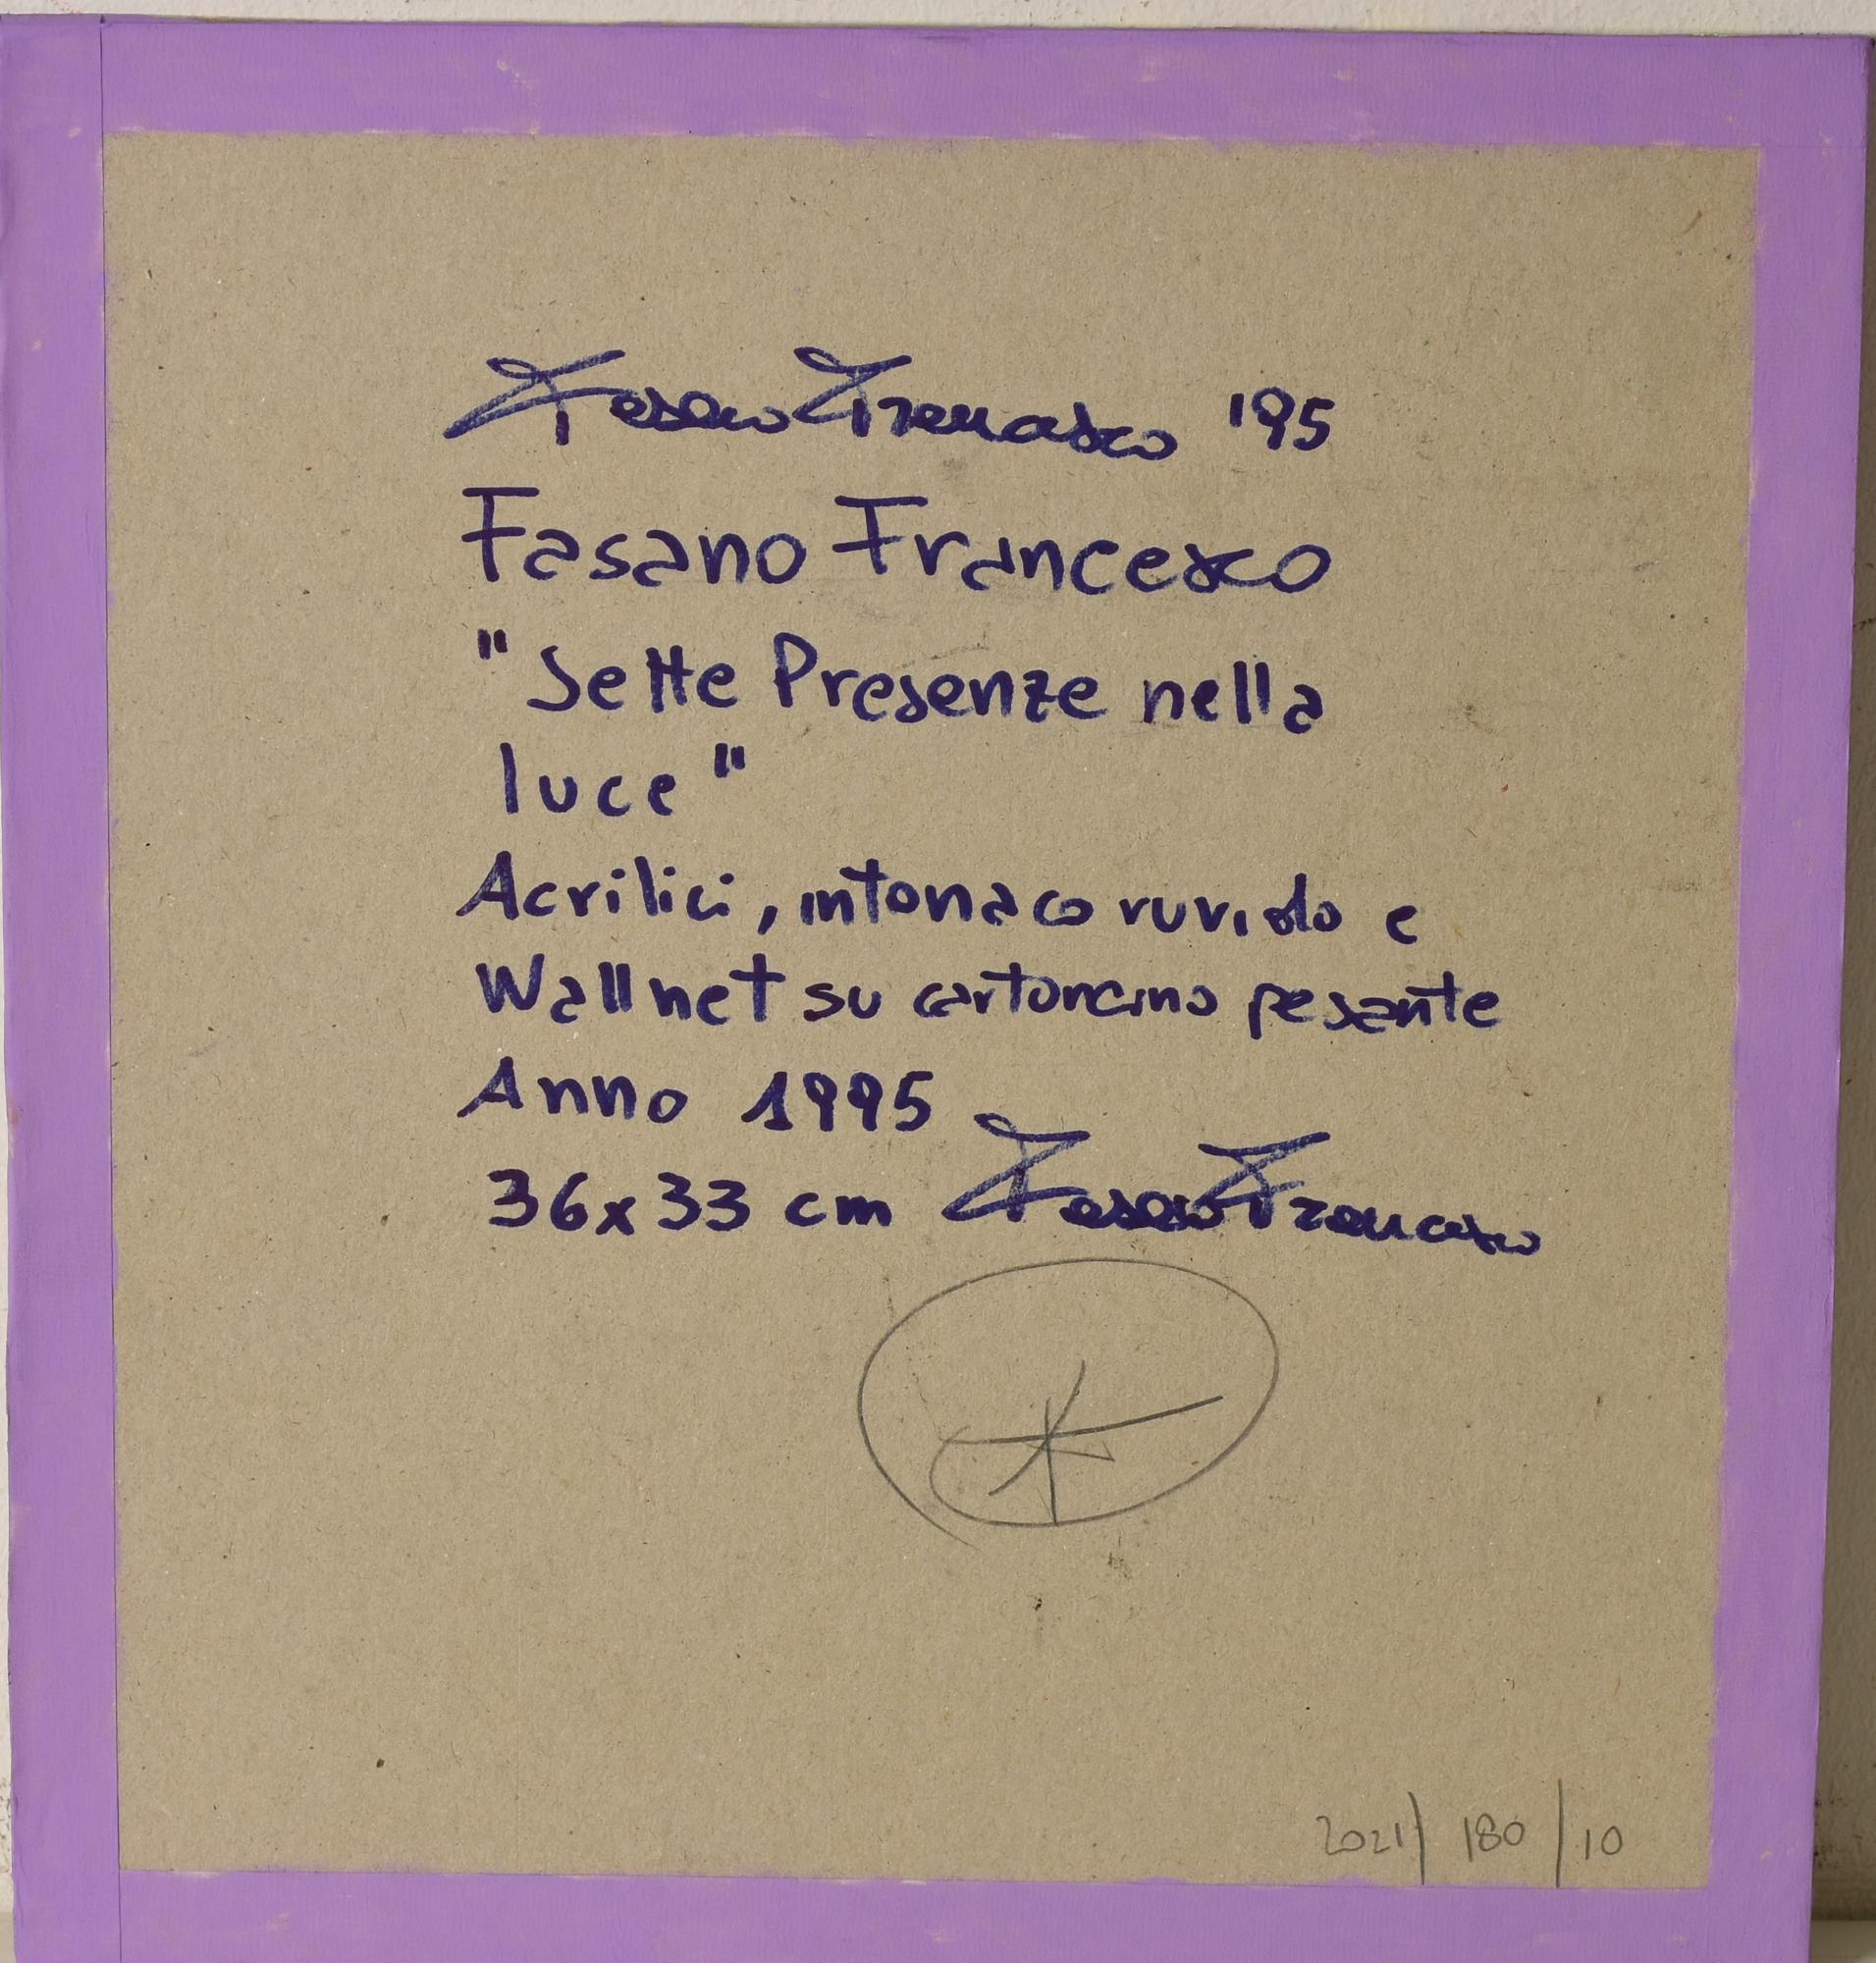 Fasano Francesco '95
Fasano Francesco
"Sette Presenze nella
luce"
Acrilici, intonaco ruvido e
Wallnet su cartoncino pesante
Anno 1995
36x33 cm Fasano Francesco
2021/180/10